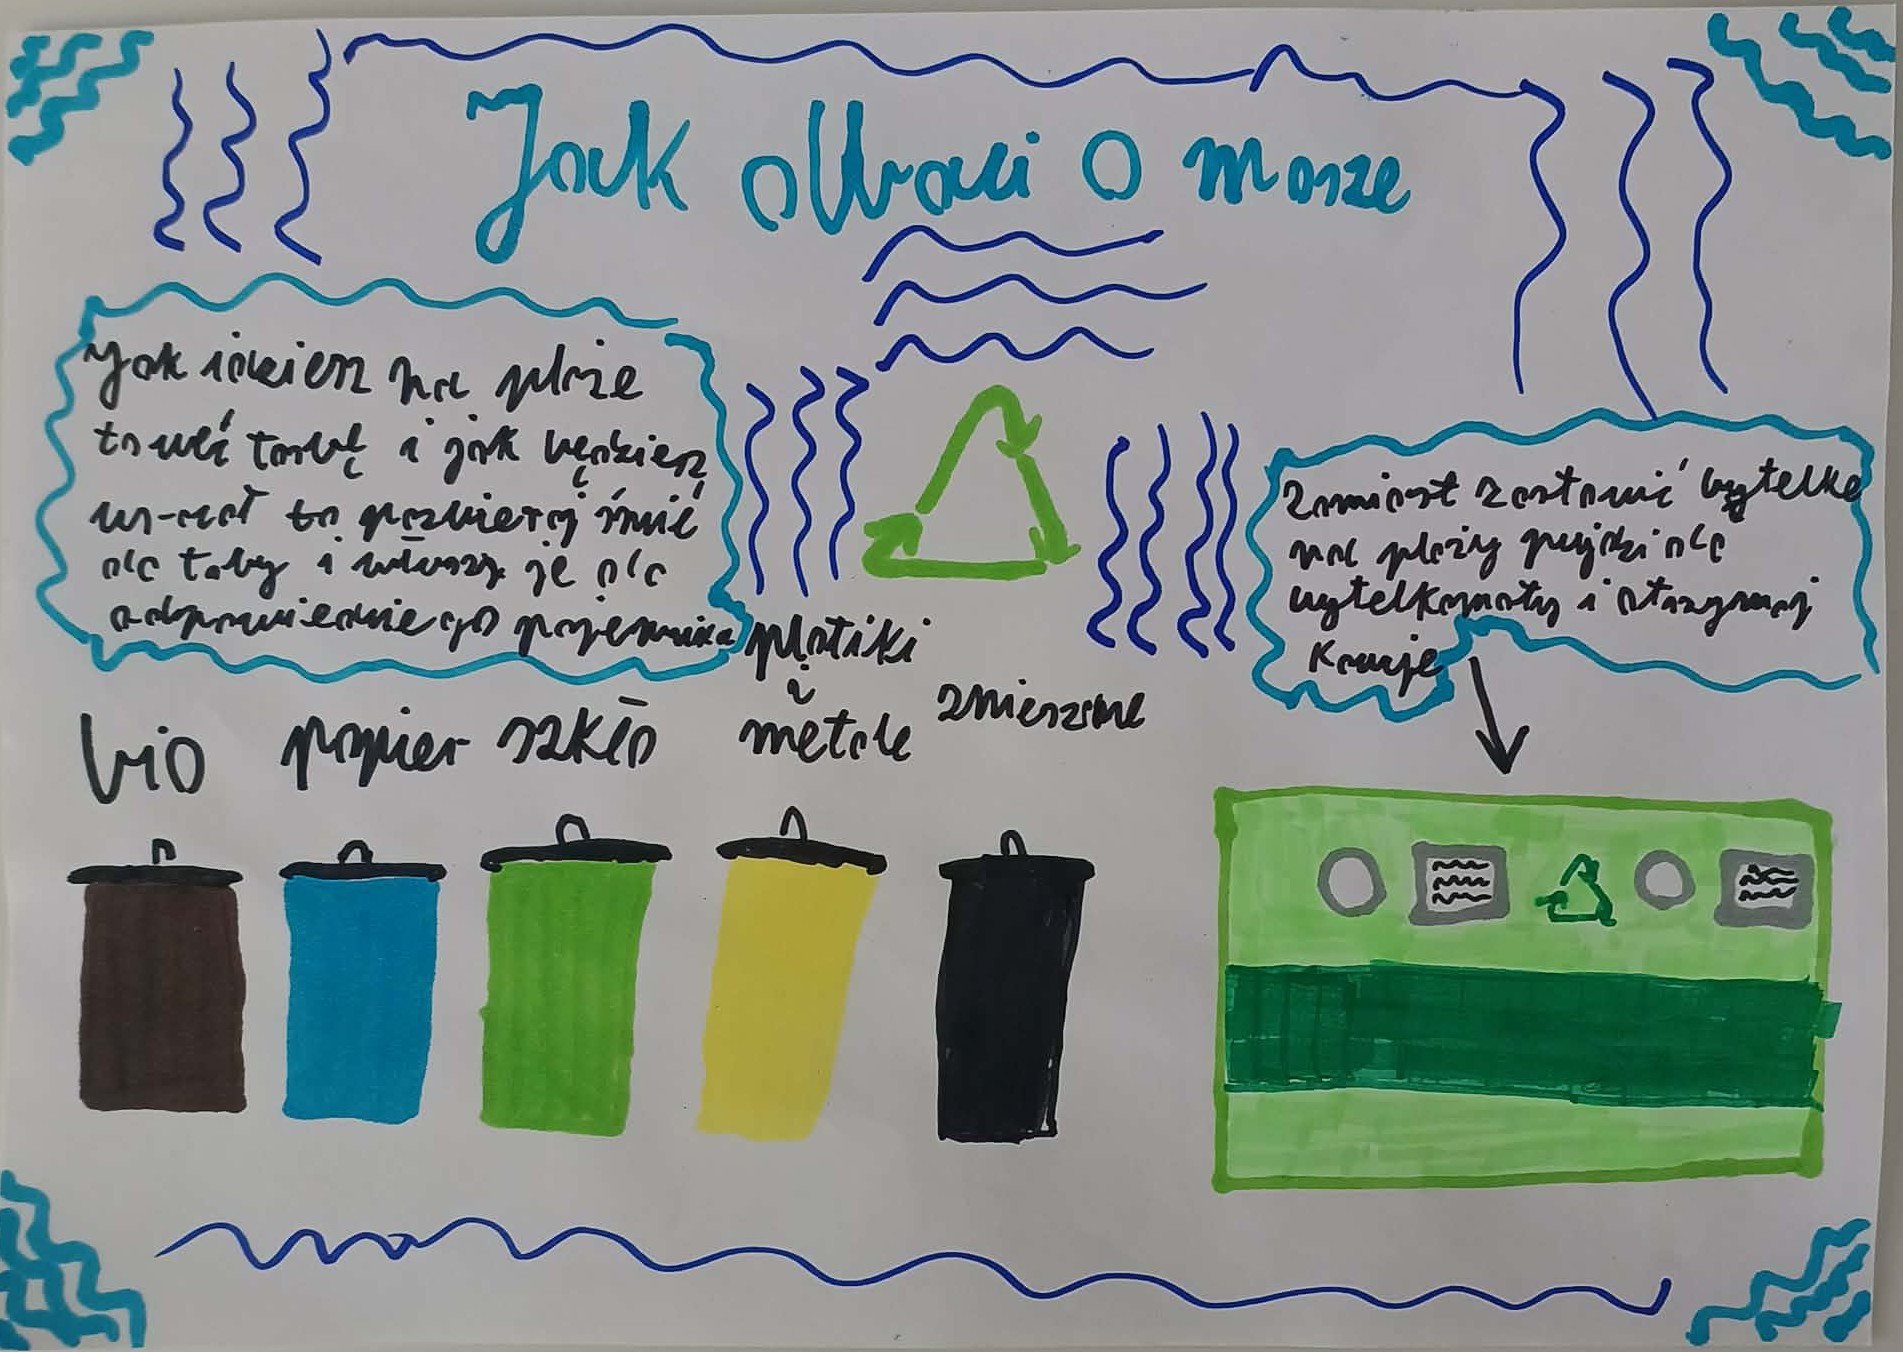 Jak dbaci o morze
Jak idziesz na plaże
to weś torbę i jak będziesz
wracał to pozbieraj śmić
do toby i wżuszy je do
odpowiedniego pojemnika
Zamiast zostawić bytelke
na plaży pujdzi do
bytelkomaty i otrzymaj
Kaucje
bio
papier
szkło
platiki
i
metale
zmieszane